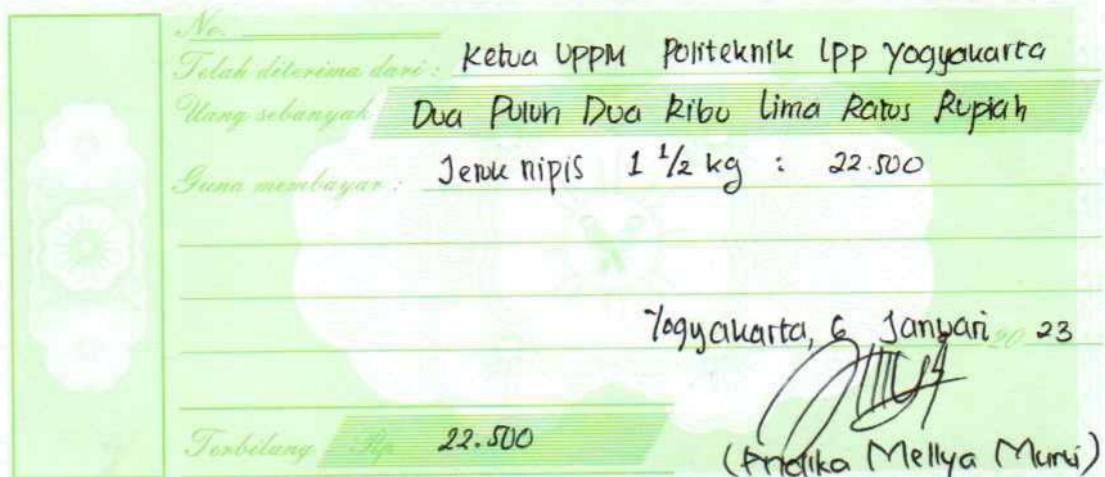 No.
Telah diterima dari : Ketua UPPM Politeknik LPP Yogyakarta
Uang sebanyak Dua Puluh Dua Ribu Lima Ratus Rupiah
Guna membayar : Jeruk nipis 1 1/2 kg : 22.500
Yogyakarta, 6 Januari 20 23
Terbilang Rp. 22.500
(Andika Mellya Murni)